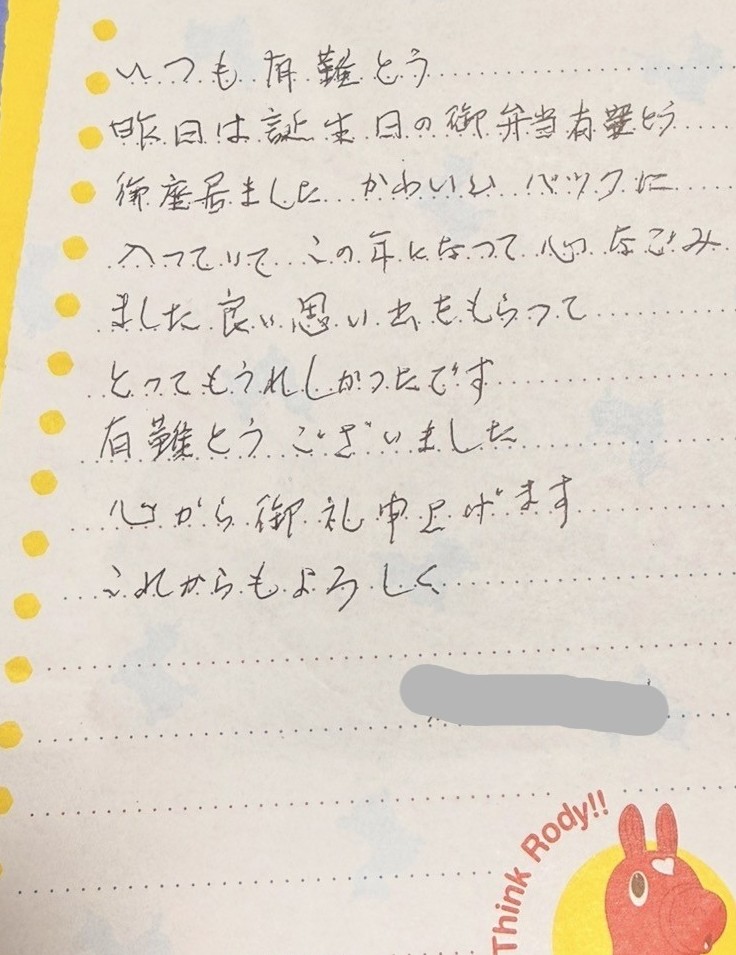 いつも有難とう
昨日は誕生日の御弁当有難とう
御座居ました かわいい パックに
入つていて この年になつて心なごみ
ました良い思い出をもらつて
とつてもうれしかつたです
有難とうございました
心から御礼申上げます
これからもよろしく
Think Rody!!